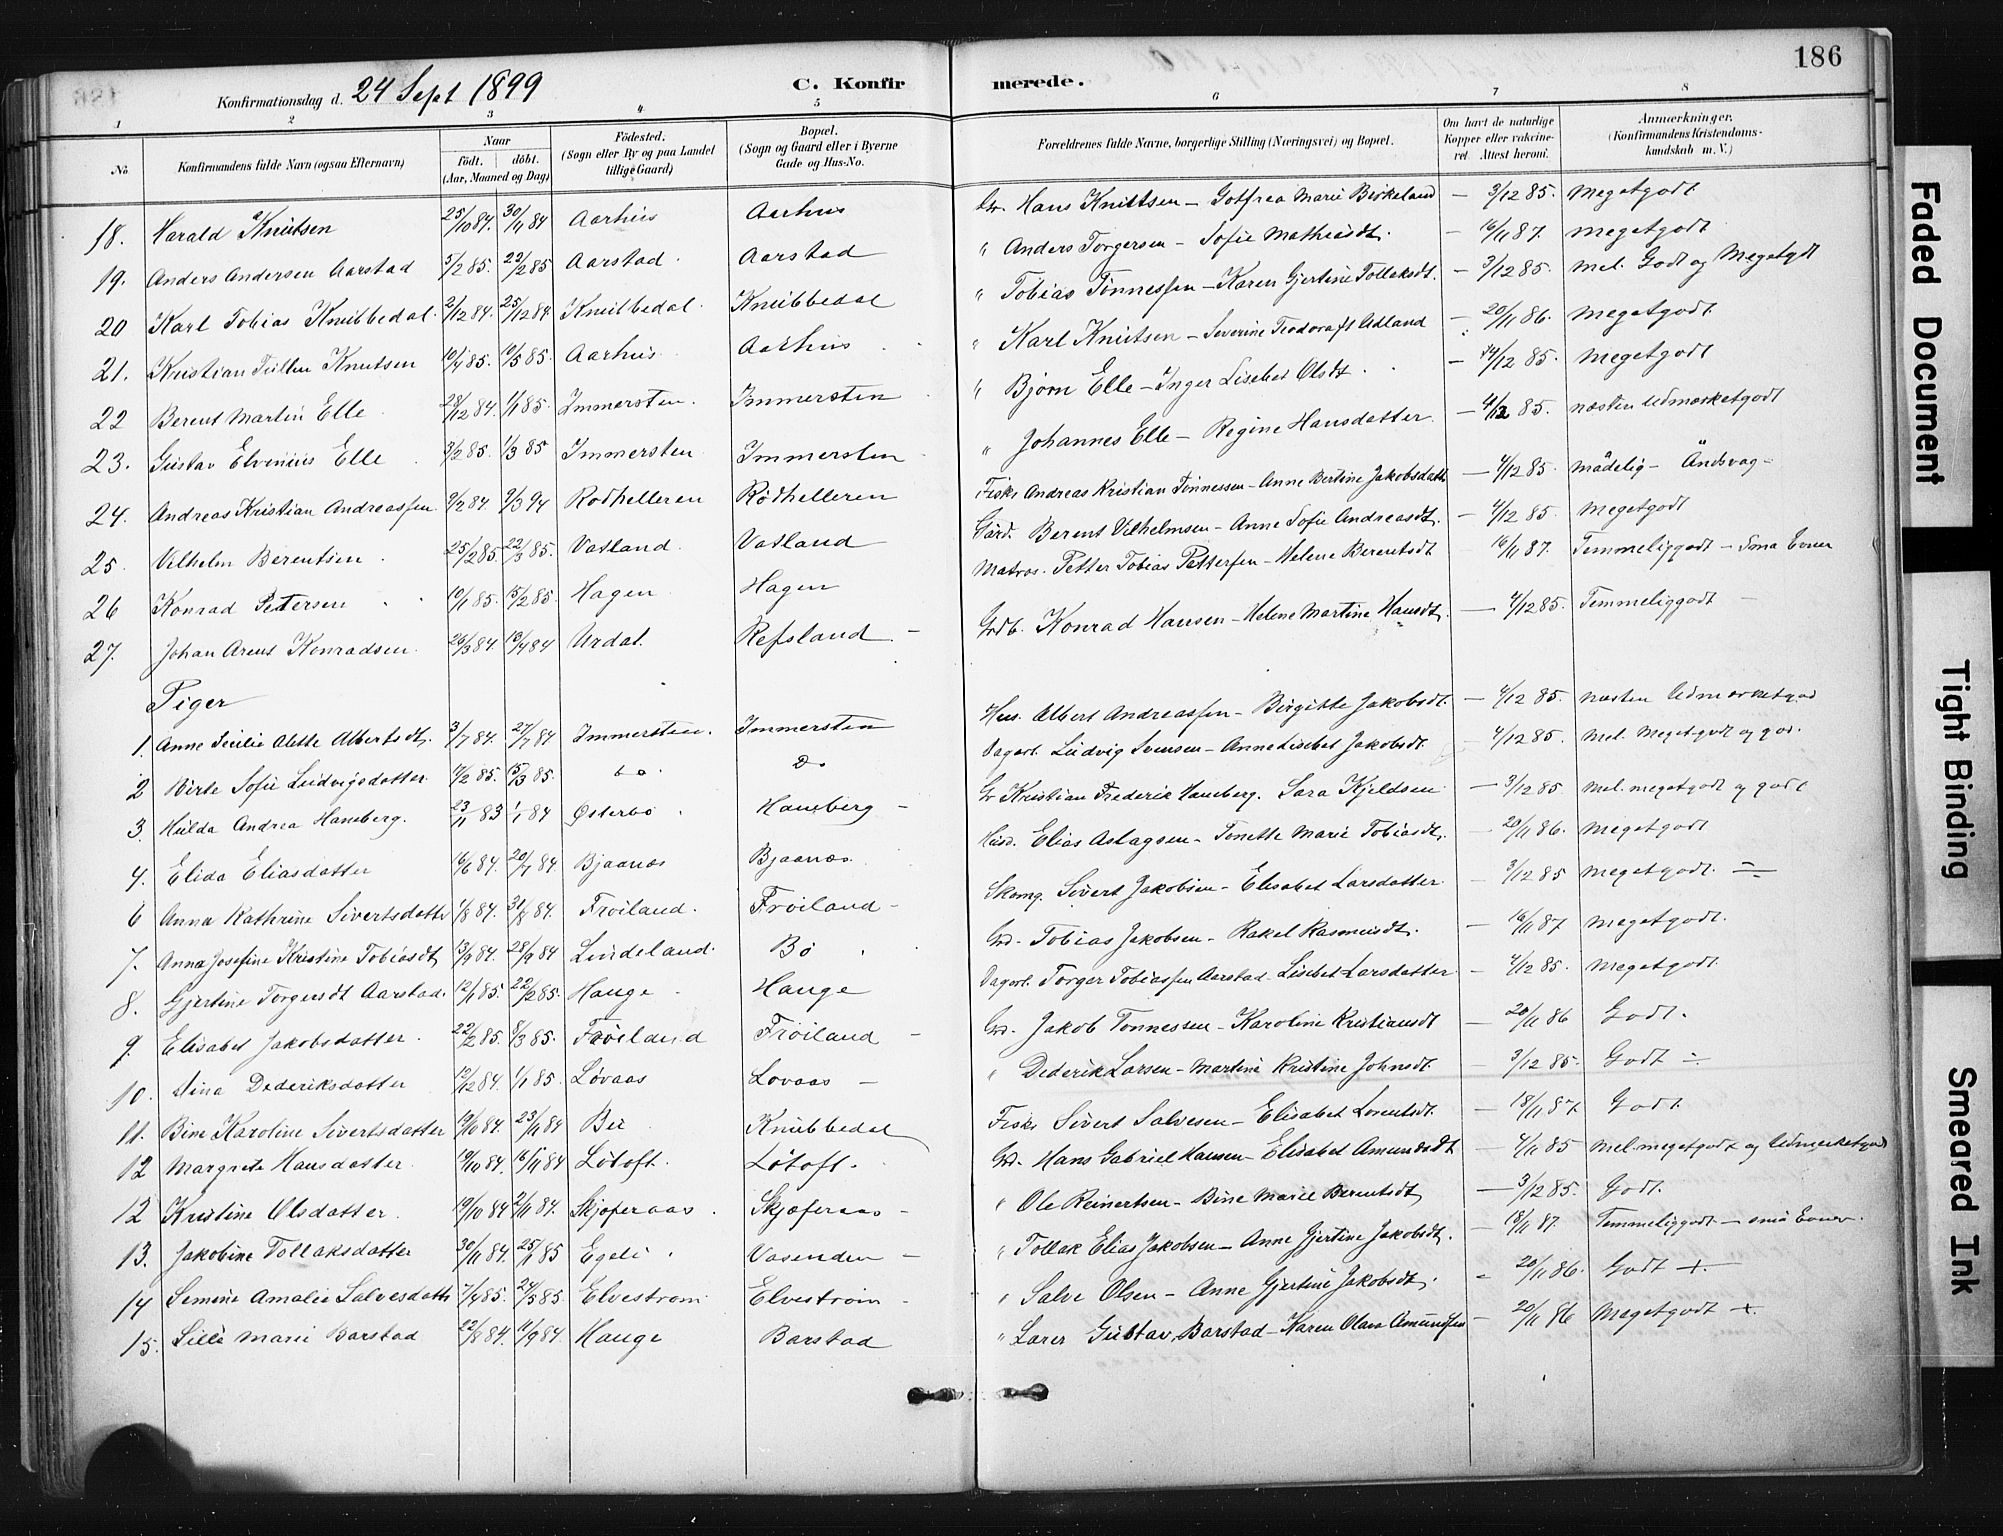 186
Konfirmationsdag d. 24 Sept 1899
C. Konfirmerede.
1 2 3 4 5 6 7 8
No. Konfirmandens fulde Navn (ogsaa Efternavn)
Naar født. døbt. (Aar, Maaned og Dag)
Fødested. (Sogn eller By og paa Landet tillige Gaard)
Bopæl. (Sogn og Gaard eller i Byerne Gade og Hus-No.
Forældrenes fulde Navne, borgerlige Stilling (Næringsvei) og Bopæl.
Om havt de naturlige Kopper eller vakcineret. Attest herom.
Anmærkninger. (Konfirmandens Kristendomskundskab m. V.)
18. Harald Knutsen 25/10 84. 30/11 84 Aarhus Aarhus Hans Knutsen – Gotfrea Marie Birkeland – 3/12 85. Megetgodt
19. Anders Andersen Aarstad 5/2 85. 22/2 85 Aarstad. Aarstad " Anders Torgersen – Sofie Mathiasdt. – 16/11 87. Megetgodt
20 Karl Tobias Knubbedal. 2/12 84. 25/12 84. Knubbedal. Knubbedal " Tobias Tønnessen – Karen Gjertine Tollaksdt. – 3/12 85. Mel. Godt og Megetgdt
21. Kristian Knutsen 10/4 85. 10/5 85. Aarhus. Aarhus " Karl Knutsen – Severine Teodora Udland – 20/11 86. Megetgodt
22 Berent Martin Elle. 28/12 84. 1/1 85. Immersten. Immersten " Bjørn Elle – Inger Lisebet Olsdt. – 4/12 85. Megetgodt
23. Gustav Elvenius Elle 3/2 85. 1/3 85 Immersten Immersten " Johannes Elle – Regine Hansdatter. – 4/12 85. næsten Udmærketgodt
24. Andreas Kristian Andreassen 9/2 84. 9/3 94 Rødhelleren Rødhelleren Fisk. Andreas Kristian Tønnessen – Anne Bertine Jakobsdatt – 4/12 85. mådelig – Åndsvag –
25. Vilhelm Berentsen. 25/2 85. 22/3 85. Vatland. Vatland Gård. Berent Vilhelmsen – Anne Sofie Andreasdt. – 4/12 85. Megetgodt
26 Konrad Petersen 10/1 85. 15/2 85. Hagen. Hagen Matros. Petter Tobias Pettersen – Helene Berentsdt – 16/11 87. Temmeliggodt – Små Evner
27. Johan Arent Konradsen. 26/3 84. 10/4 84 Urdal. Refsland. – Grdb. Konrad Hansen – Helene Martine Hansdt. – 4/12 85. Temmeliggodt –
Piger
1. Anne Alette Albertsdt. 3/7 84. 27/7 84 Immersten. Immersten Hus. Albert Andreassen – Birgitte Jakobsdt. – 4/12 85. næsten Udmærketgod
2 Birte Sofie Ludvigsdatter. 4/2 85. 15/3 85. do. Do Dagarb. Ludvig Svensen – Anne Lisebet Jakobsdt. 4/12 85. Mel. Megetgodt og god.
3. Hulda Andrea Haneberg. 23/11 83 1/1 84 Østerbø. Haneberg – Kristian Frederik Haneberg. Sara Kjeldsen – 3/12 85 Mel. megetgodt og godt
4. Elida Eliasdatter 16/6 84. 20/7 84 Bjaanæs Bjaanæs. Husd. Elias Aslagsen – Tonette Marie Tobiasdt. – 20/11 86. Megetgodt
6 Anna Kathrine Sivertsdatter 1/8 84. 31/8 84. Frøiland. Frøiland – Skomg. Sivert Jakobsen – Elisabet Larsdatter – 3/12 85 Megetgodt.
7. Anna Josefine Kristine Tobiasdt 13/9 84. 28/9 84 Lindeland. Bø Grd. Tobias Jakobsen – Rakel Rasmusdt. – 16/11 87 Megetgodt.
8. Gjertine Torgersdt Aarstad. 12/1 85. 22/2 85. Hauge. Hauge Dagarb. Torger Tobiassen Aarstad – Lisebet Larsdatter – 4/12 85. Megetgodt.
9. Elisabet Jakobsdatter. 22/2 85. 8/3 85. Frøiland Frøiland – Grd. Jakob Tønnessen – Karoline Kristiansdt – 20/11 86 Godt.
10. Dederiksdatter 12/12 84. 1/1 85. Løvaas Løvaas – " Dederik Larsen – Martine Kristine Johnsdt. – 3/12 85. Godt
11. Bine Karoline Sivertsdatter 19/10 84. 23/11 84 Knubbedal Fisk. Sivert Salvesen – Elisabet Lorentsdt. – 18/11 87. Godt
12 Margrete Hansdatter. 19/10 84. 16/11 84 Løtoft. Løtoft. Grd. Hans Gabriel Hansen – Elisabet Amundsdt – 4/11 85 Mel. megetgodt og Udmerketgod
12 Kristine Olsdatter. 19/10 84 2/11 84. Skjøferaas. Skjæferaas – " Ole Reinertsen – Bine Marie Berentsdt. – 3/12 85. Godt.
13. Jakobine Tollaksdatter 30/11 84. 25/1 85 Egeli. Vasenden – " Tollak Elias Jakobsen – Anne Gjertine Jakobsdt. – 18/11 87. Temmeliggodt – små Evner.
14 Semine Amalie Salvesdatter 7/4 85. 24/5 85. Elvestrøm Elvestrøm – " Salve Olsen – Anne Gjertine Jakobsdt. 20/11 86. Godt +
15. Lilli Marie Barstad 22/8 84. 11/9 84. Hauge Barstad " Gustav Barstad – Karen Olava Amundsen – 20/11 86 Megetgodt +
Faded Document
Tight Binding
Smeared Ink